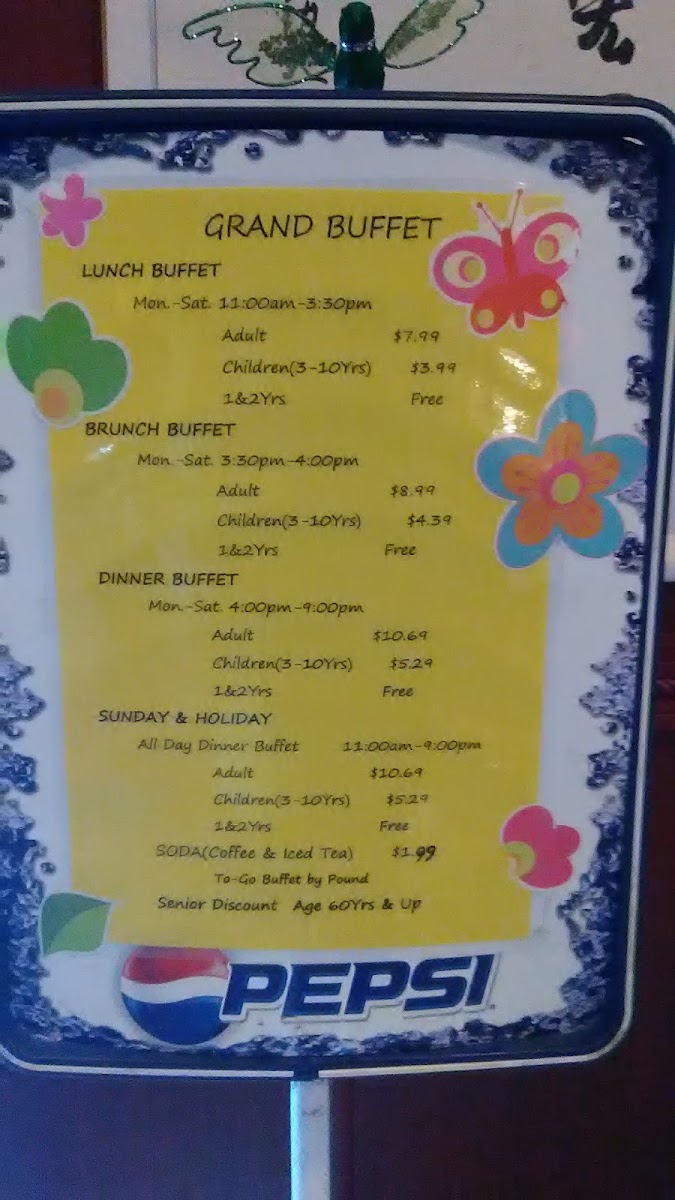 宏
GRAND BUFFET
LUNCH BUFFET
Mon.-Sat. 11:00am-3:30pm
Adult $7.99
Children(3-10Yrs) $3.99
1&2Yrs Free
BRUNCH BUFFET
Mon.-Sat. 3:30pm-4:00pm
Adult $8.99
Children(3-10Yrs) $4.39
1&2Yrs Free
DINNER BUFFET
Mon.-Sat. 4:00pm-9:00pm
Adult $10.69
Children(3-10Yrs) $5.29
1&2Yrs Free
SUNDAY & HOLIDAY
All Day Dinner Buffet 11:00am-9:00pm
Adult $10.69
Children(3-10Yrs) $5.29
1&2Yrs Free
SODA(Coffee & Iced Tea) $1.99
To-Go Buffet by Pound
Senior Discount Age 60Yrs & Up
PEPSI